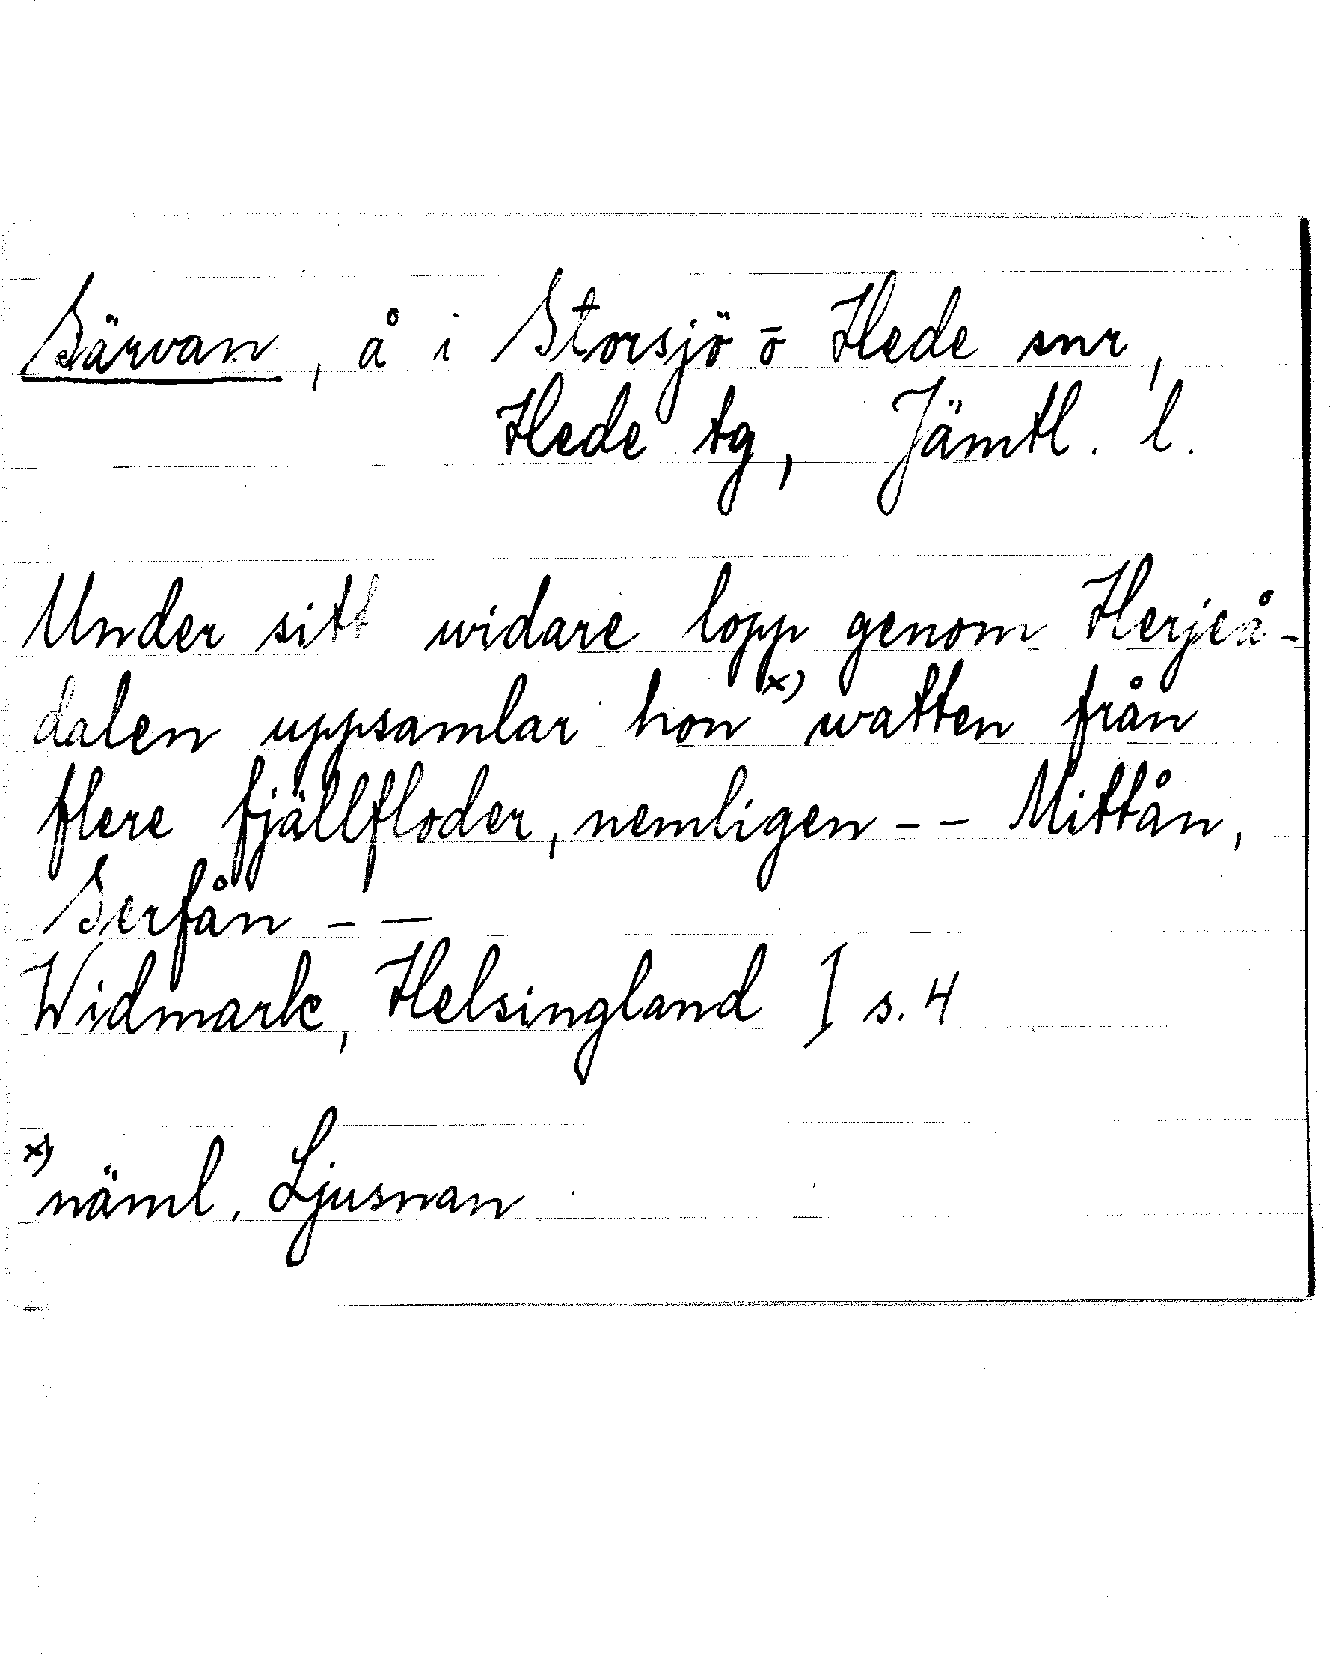 Särvan, å i Storsjö o Hede snr,
Hede tg, Jämtl. l.
Under sitt widare lopp genom Herjeå-
dalen uppsamlar hon x) watten från
flere fjällfloder, nemligen -- Mittån,
Serfån --
Widmark, Helsingland I s. 4
x) näml. Ljusnan